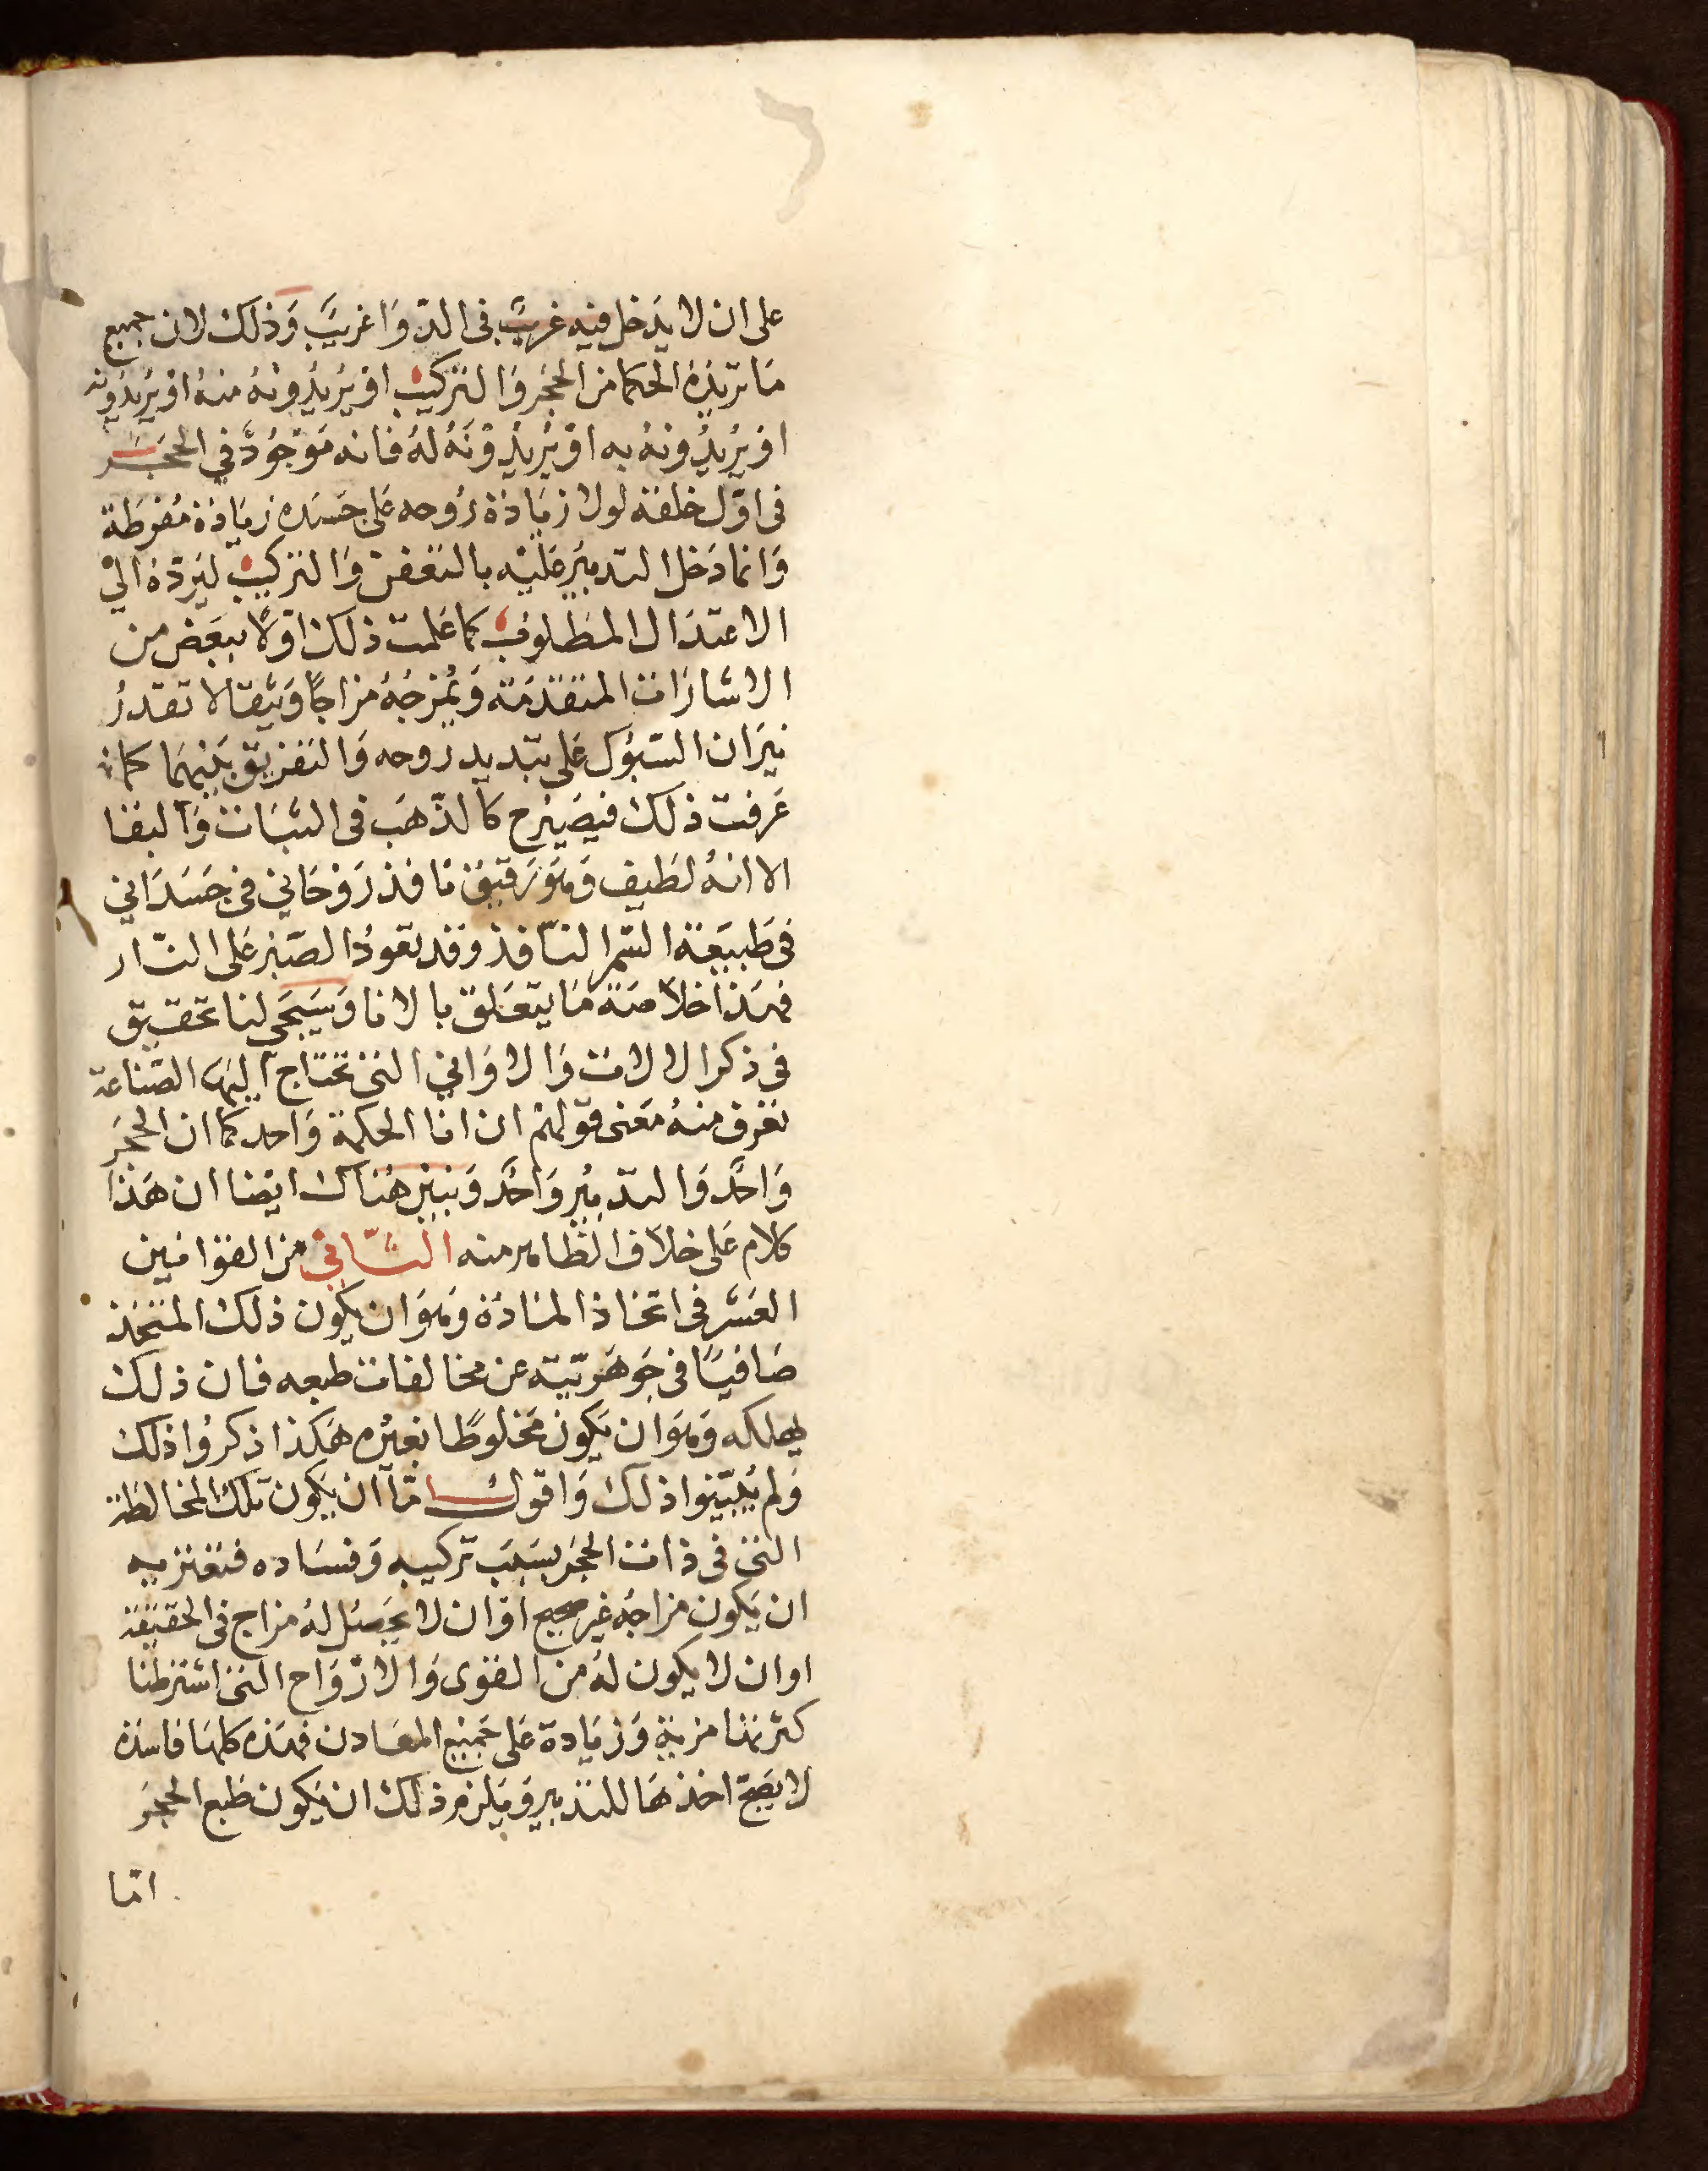 على ان لا يدخل فيه غريبٌ في الدوَا غريبٌ وَذلك لان جميع
مَا تريدُهُ الحكما من الحجَر وَالتركيب اوْ يُرِيدُونهُ منهُ اوْ يُريدُونه
اوْ يُريدُونهُ به اوْ يُريدُوْنَهُ لهُ فانه مَوْجوُدٌ في الحجَــر
في اوّل خلقته لولا زيَادَة رُوحه عَلى جَسَده زيَادَة مُفرطَة
وَانما دَخل التدبيرُ عَليْه بالتعَفن وَالتركيب ليَردّهُ اليْ
الاعتدَال المطلوب كما عَلمت ذلك اوّلاً ببعَض من
الاشارَات المتقدّمَة وَيُمْزجُهُ مزاجًا وَثيقا لا تقدرُ
نيرَان السّبوُك عَلى تبديد روحه وَالتفريق بَيْنهمَا كما
عَرفت ذلك فيصَيْر ح كالذّهَب في الثبَات وَالبقا
الا انهُ لطَيف وَهوَ رَقيق نَافذ رَوْحَاني في جَسَدَاني
في طَبيعَة السّم النّافذ وقد تعَودُ الصّبْر عَلى النّار
فهَذَا خلاصَة مَا يتعَلق بالانا وَسَيَجي لنا تحقيق
في ذكر الالات وَالاوَاني التي تحتاج اليهَا الصّناعة
نعرف منهُ مَعَنى قوْلهمْ ان انا الحكمة وَاحد كما ان الحجَر
وَاحدٌ وَالتدبيرُ وَاحدٌ وَنبين هُنَاك ايضا ان هَذا
كلام عَلى خلاف الظاهر منه الثّاني من القوَانين
العَشر في اتخاذ المادَة وَهوَ ان يكون ذلك المتخَذ
صَافيًا في جَوهَريّته عن مخالفات طبعه فان ذلك
يهلكه وَهوَ ان يَكون مَخلوطًا بغيْره هَكذا ذكرُوا ذلك
وَلم يُبيّنوا ذلك وَاقول امّا ان يَكون تلك المخالطة
التي في ذات الحجَر بسَبَب تركيبه وَفسَاده فتعتريه
ان يَكون مزاجُه غير صحيح اوْ ان لا يحَصَل لهُ مزاج في الحقيقة
او ان لا يكون لهُ من القوَى وَالارْوَاح التي اشترطنا
كثرتها مزية وَزيَادة عَلى جَميع المعَادن فهَذه كلهَا فاسَدة
لا يصَحّ اخذهَا للتدبير وَيَلزم ذلك ان يَكون طَبع الحجَر
امّا